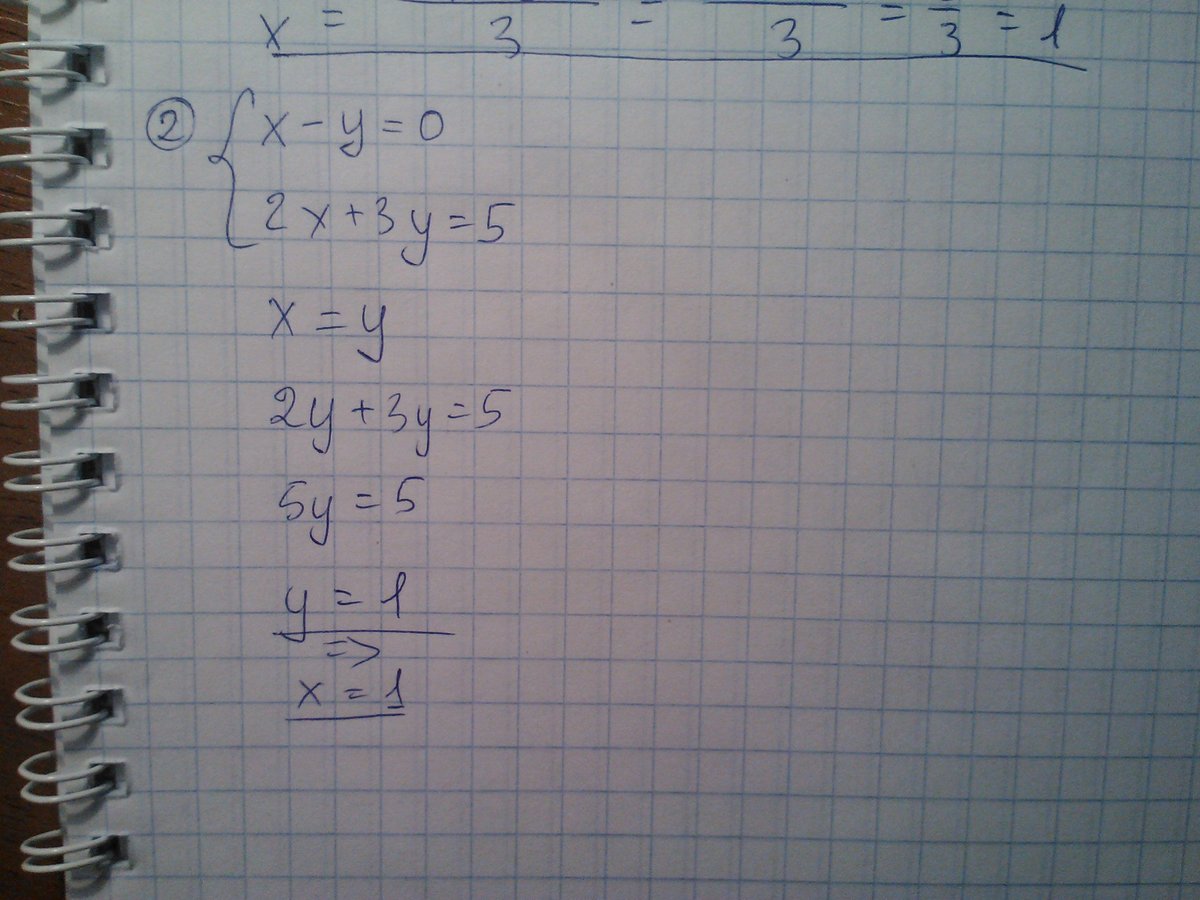 x = 3 = 3 = 3 = 1
② { x - y = 0
2x + 3y = 5
x = y
2y + 3y = 5
5y = 5
y = 1
=>
x = 1